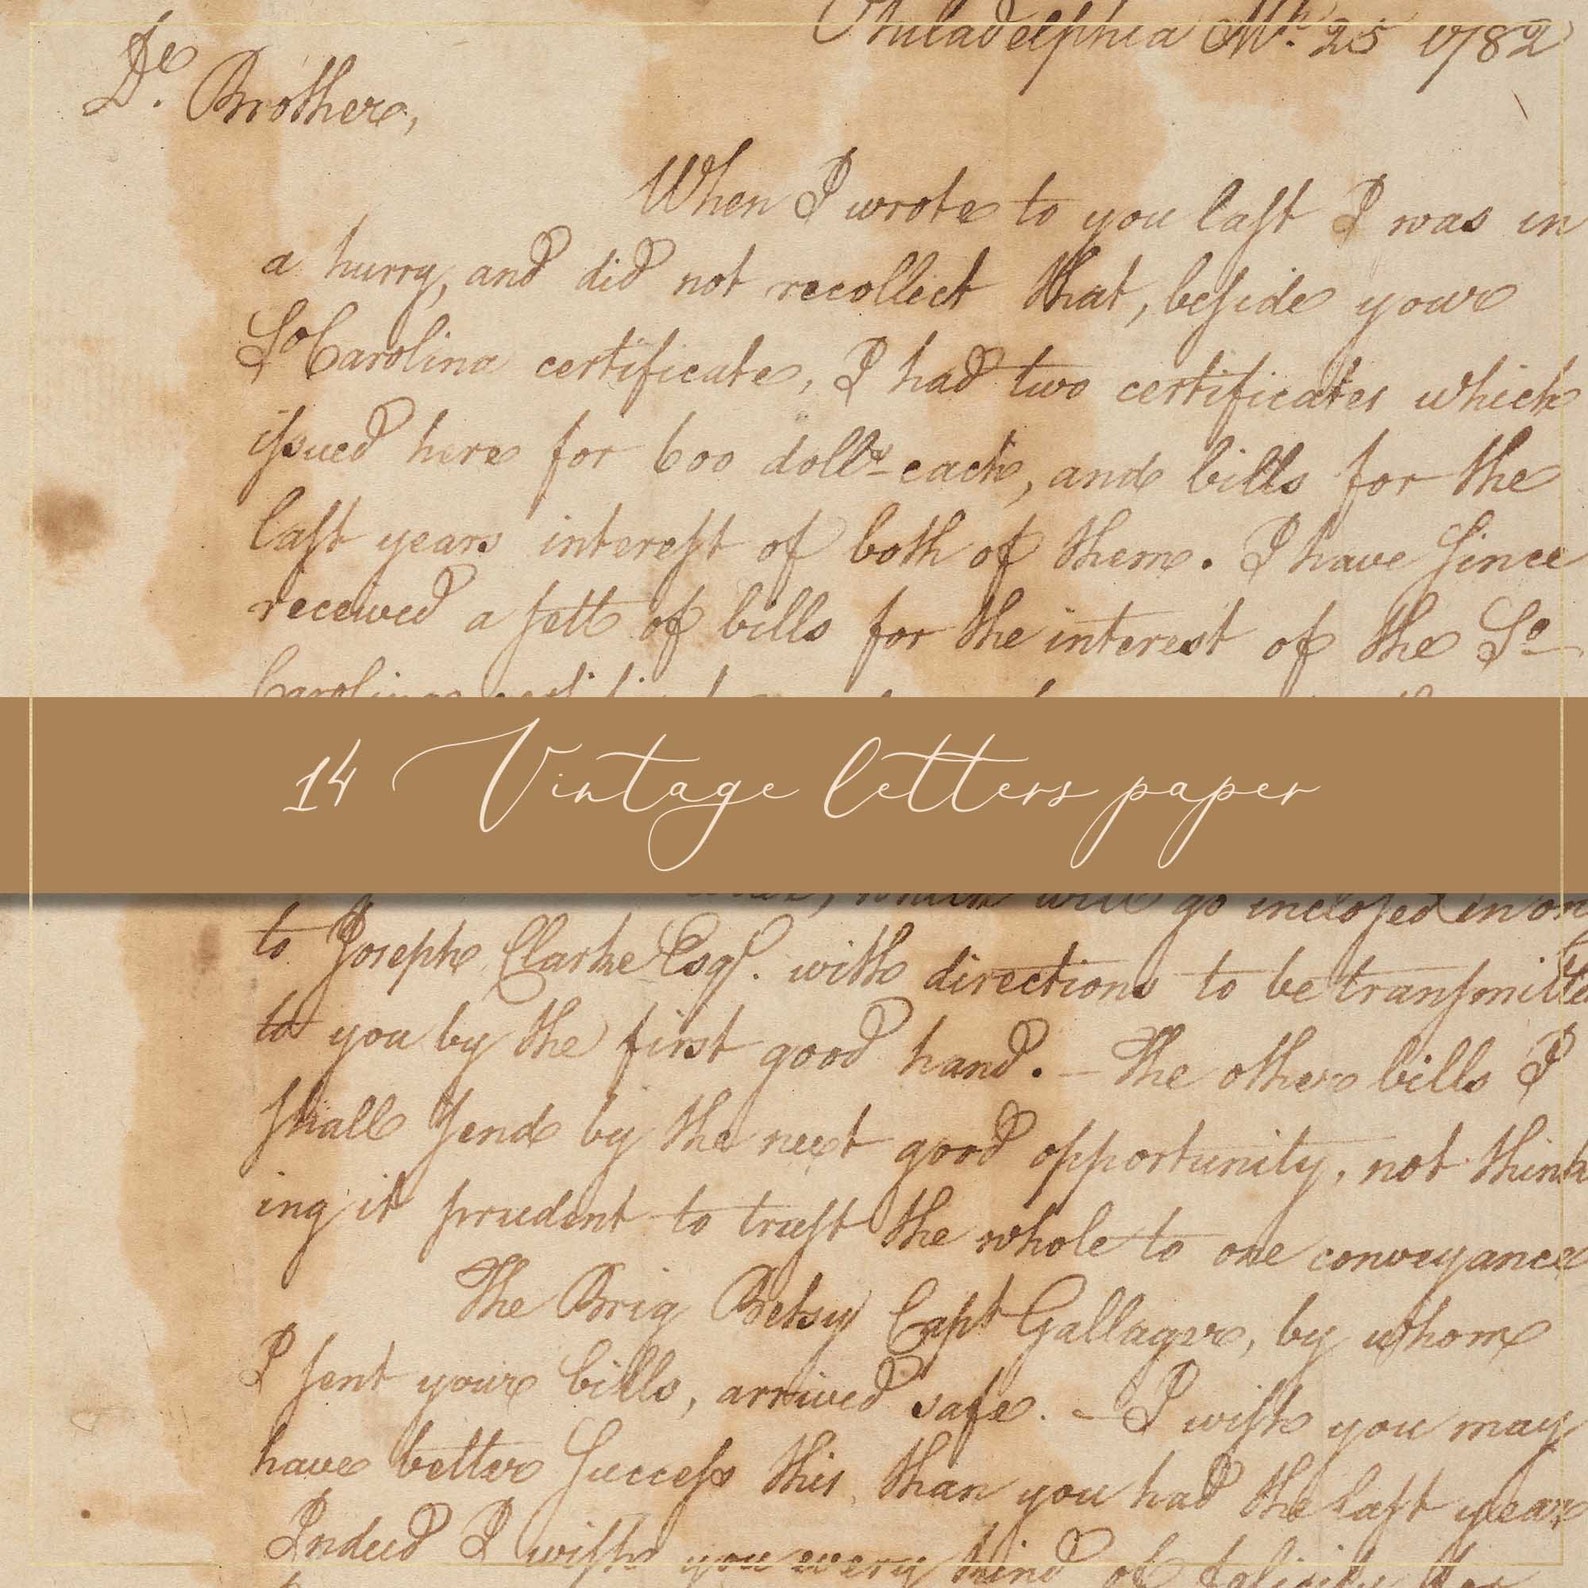 Philadelphia Mh. 25 1782
De. Brother,
When I wrote to you laſt I was in
a hurry, and did not recollect that, beſide your
So Carolina certificate, I had two certificates which
iſsued here for 600 dollrs each, and bills for the
laſt years intereſt of both of them. I have ſince
received a ſett of bills for the interest of the So
Carolina
14 Vintage letters paper
which will go incloſed in on
to Joseph Clarke Esqr. with directions to be tranſmitte
to you by the first good hand. — The other bills I
ſhall ſend by the next good opportunity, not think
ing it prudent to truſt the whole to one conveyance
The Brig Betsy Capt Gallager, by whom
I ſent your bills, arrived safe. — I wiſh you may
have better ſucceſs this, than you had the laſt year
Indeed I wiſh you every kind of felicity